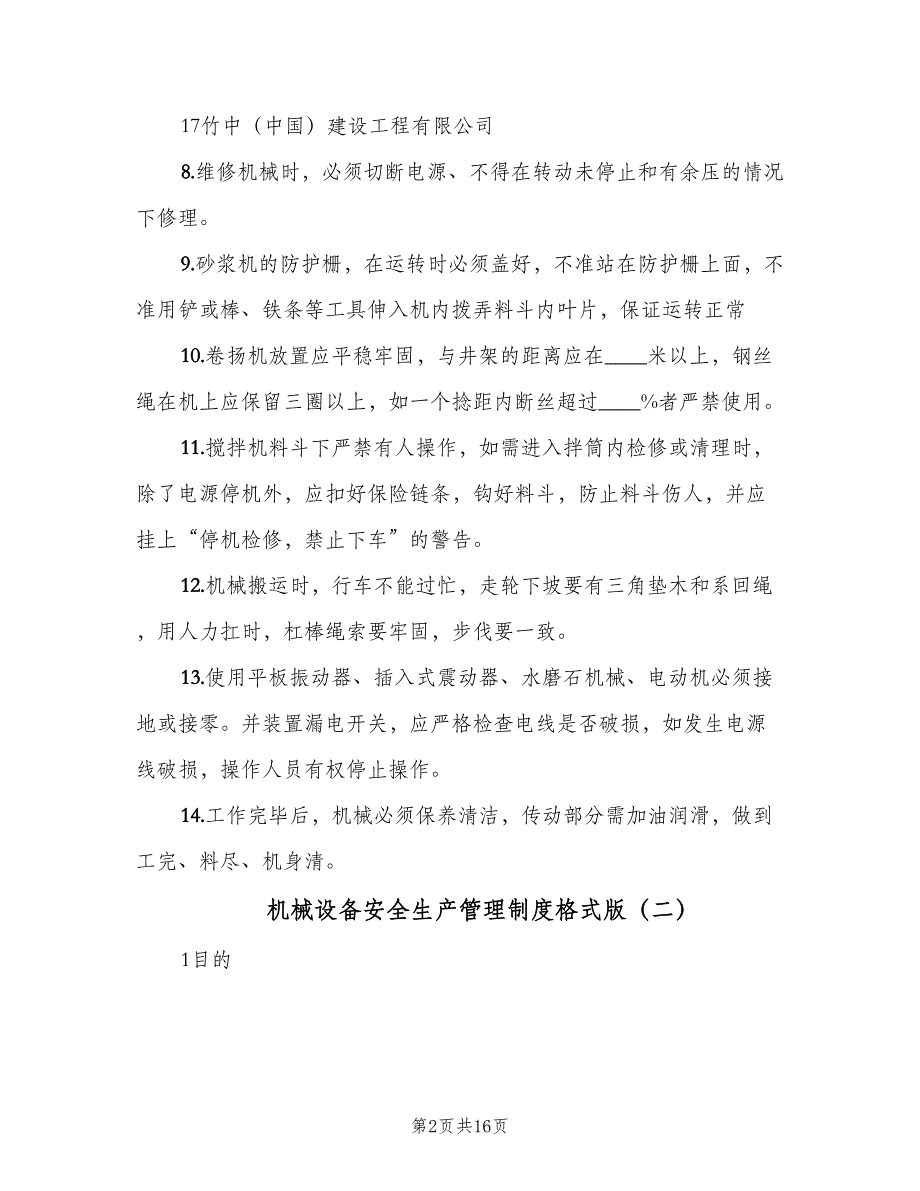 17竹中（中国）建设工程有限公司
8.维修机械时，必须切断电源、不得在转动未停止和有余压的情况
下修理。
9.砂浆机的防护栅，在运转时必须盖好，不准站在防护栅上面，不
准用铲或棒、铁条等工具伸入机内拨弄料斗内叶片，保证运转正常
10.卷扬机放置应平稳牢固，与井架的距离应在____米以上，钢丝
绳在机上应保留三圈以上，如一个捻距内断丝超过____%者严禁使用。
11.搅拌机料斗下严禁有人操作，如需进入拌筒内检修或清理时，
除了电源停机外，应扣好保险链条，钩好料斗，防止料斗伤人，并应
挂上“停机检修，禁止下车”的警告。
12.机械搬运时，行车不能过忙，走轮下坡要有三角垫木和系回绳
，用人力扛时，杠棒绳索要牢固，步伐要一致。
13.使用平板振动器、插入式震动器、水磨石机械、电动机必须接
地或接零。并装置漏电开关，应严格检查电线是否破损，如发生电源
线破损，操作人员有权停止操作。
14.工作完毕后，机械必须保养清洁，传动部分需加油润滑，做到
工完、料尽、机身清。
机械设备安全生产管理制度格式版（二）
1目的
第2页共16页